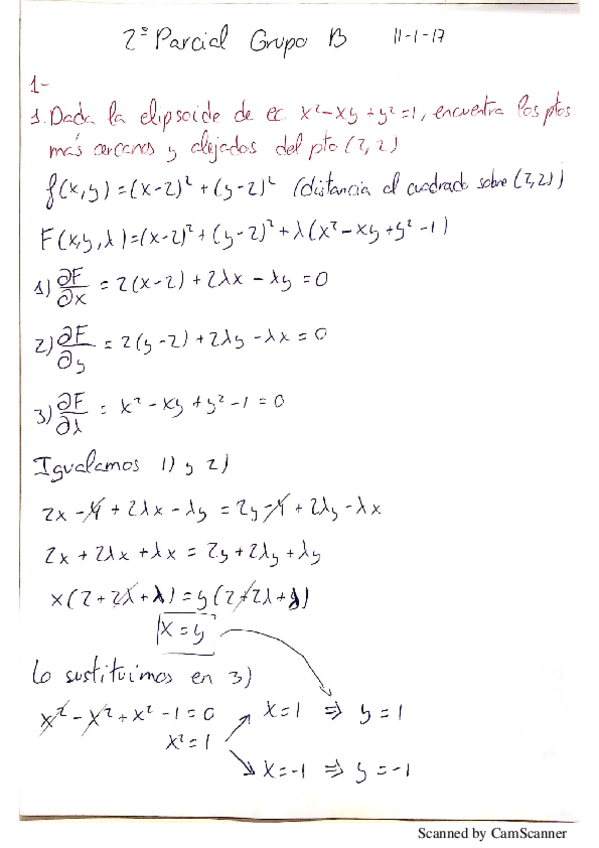 2º Parcial Grupo B 11-1-17
1-
1. Dada la elipsoide de ec. x²-xy+y²=1, encuentra los ptos
más cercanos y alejados del pto (2,2)
f(x,y)=(x-2)²+(y-2)² (distancia al cuadrado sobre (2,2))
F(x,y,λ)=(x-2)²+(y-2)²+λ(x²-xy+y²-1)
1) ∂F/∂x = 2(x-2)+2λx-λy=0
2) ∂F/∂y = 2(y-2)+2λy-λx=0
3) ∂F/∂λ = x²-xy+y²-1=0
Igualamos 1) y 2)
2x-4+2λx-λy=2y-4+2λy-λx
2x+2λx+λx=2y+2λy+λy
x(2+2λ+λ)=y(2+2λ+λ)
x=y
Lo sustituimos en 3)
x²-x²+x²-1=0
x=1 ⇒ y=1
x²=1
x=-1 ⇒ y=-1
Scanned by CamScanner